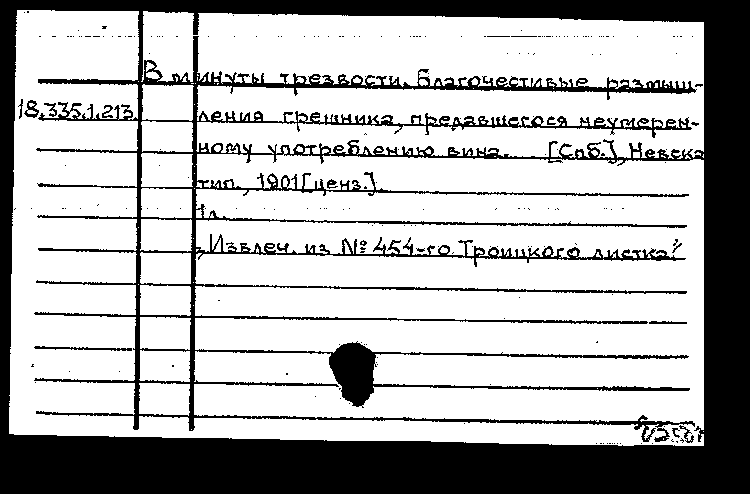 В минуты трезвости. Благочестивые размыш-
18.335.1.213 ления грешника, предавшегося неумерен-
ному употреблению вина. [Спб.], Невска
тип., 1901 [ценз.].
1л.
„Извлеч. из № 454-го Троицкого листка."